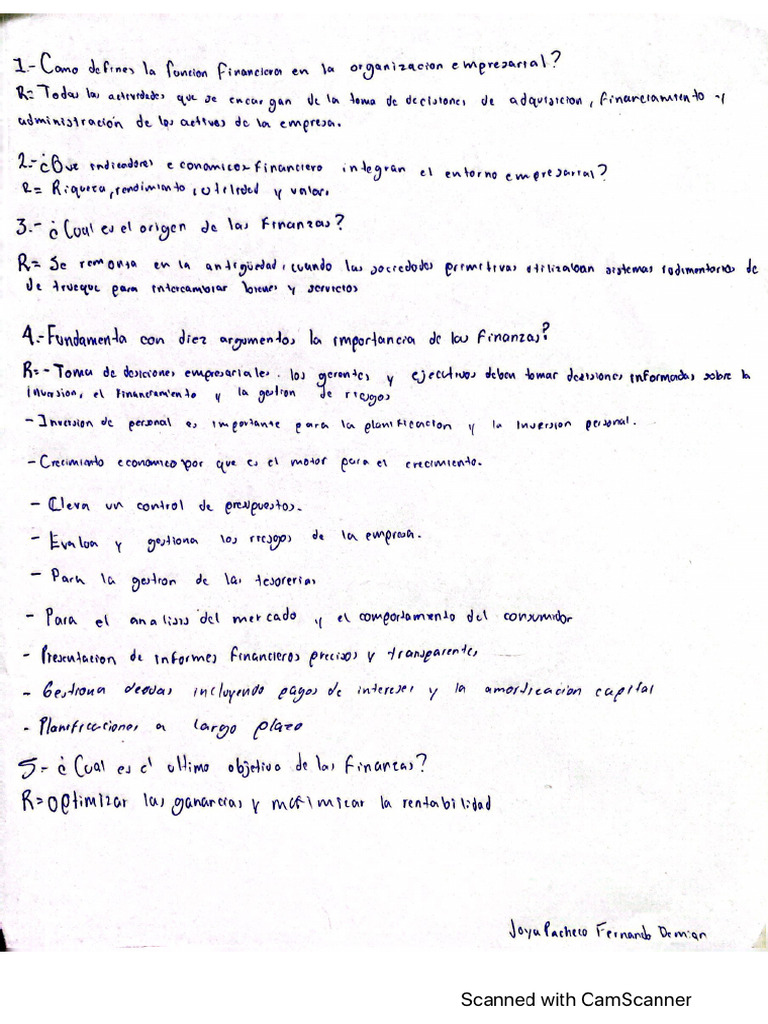 1.- Como defines la funcion financiera en la organizacion empresarial?
R= Todas las actividades que se encargan de la toma de decisiones de adquisicion, financiamiento y
administración de los activos de la empresa.
2.- ¿Que indicadores economicos financiero integran el entorno empresarial?
R= Riqueza, rendimiento, utilidad y valor.
3.- ¿Cual es el origen de las finanzas?
R= Se remonta en la antigüedad, cuando las sociedades primitivas utilizaban sistemas rudimentarios de
de trueque para intercambiar bienes y servicios
4.- Fundamenta con diez argumentos la importancia de las finanzas?
R= - Toma de desiciones empresariales. los gerentes y ejecutivos deben tomar decisiones informadas sobre la
inversion, el financiamiento y la gestion de riesgos
- Inversion de personal es importante para la planificacion y la inversion personal.
- Crecimiento economico por que es el motor para el crecimiento.
- Lleva un control de presupuestos.
- Evalua y gestiona los riesgos de la empresa.
- Para la gestion de las tesorerias
- Para el analisis del mercado y el comportamiento del consumidor
- Presentacion de informes financieros precisos y transparentes
- Gestiona deudas incluyendo pagos de intereses y la amortizacion capital
- Planificaciones a largo plazo
5- ¿Cual es el ultimo objetivo de las finanzas?
R= Optimizar las ganancias y maximizar la rentabilidad
Joya Pacheco Fernando Demian
Scanned with CamScanner